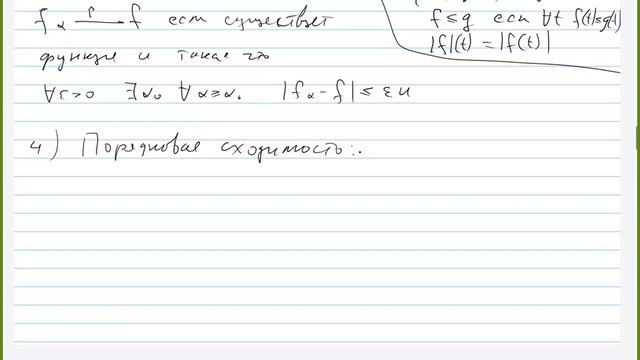 f_α —r→ f если существует
функция u такая что
∀ε>0 ∃α₀ ∀α≥α₀ |f_α - f| ≤ εu
f ≤ g если ∀t f(t)≤g(t)
|f|(t) = |f(t)|
4) Порядковая сходимость: